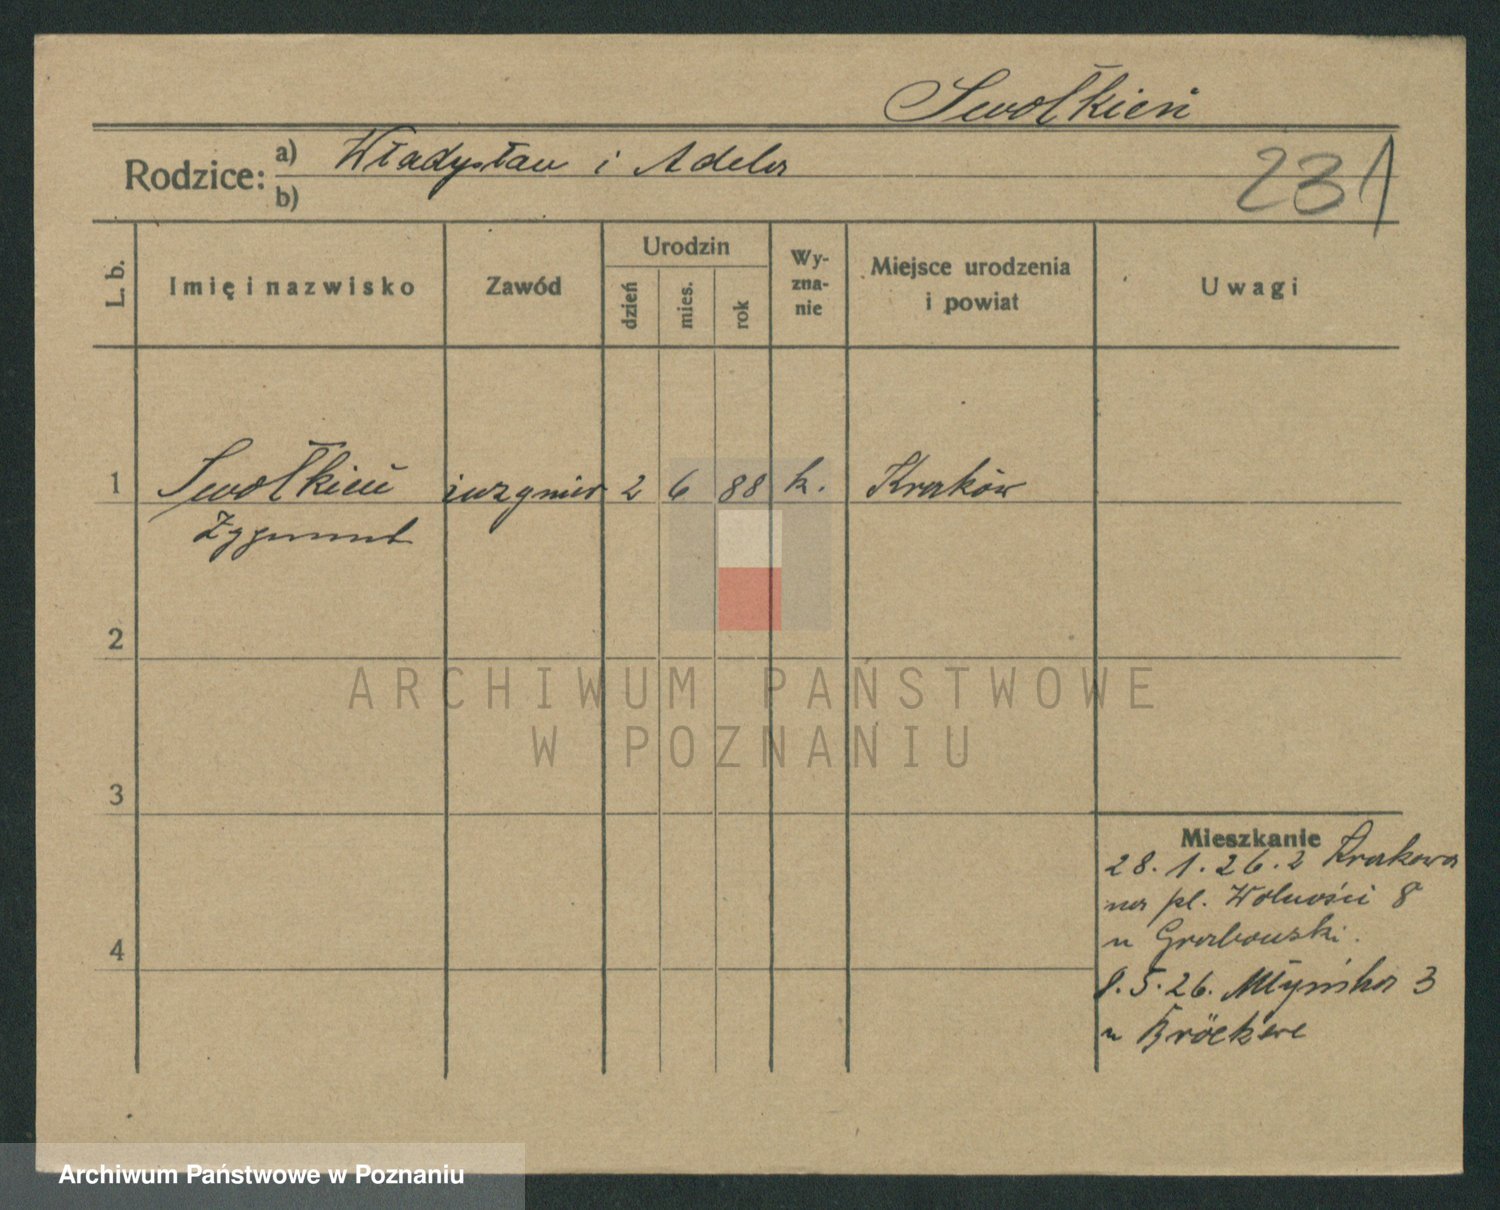 Swołkień
Rodzice: a) Władysław i Adela
b)
231
L. b. Imię i nazwisko Zawód Urodzin dzień mies. rok Wyzna-nie Miejsce urodzenia i powiat Uwagi
1 Swołkień inżynier 2 6 88 k. Kraków
Zygmunt
2
ARCHIWUM PAŃSTWOWE
W POZNANIU
3
Mieszkanie
28.1.26. z Krakowa
na pl. Wolności 8
u Grabowski.
4
8.5.26. Młyńska 3
u
Archiwum Państwowe w Poznaniu